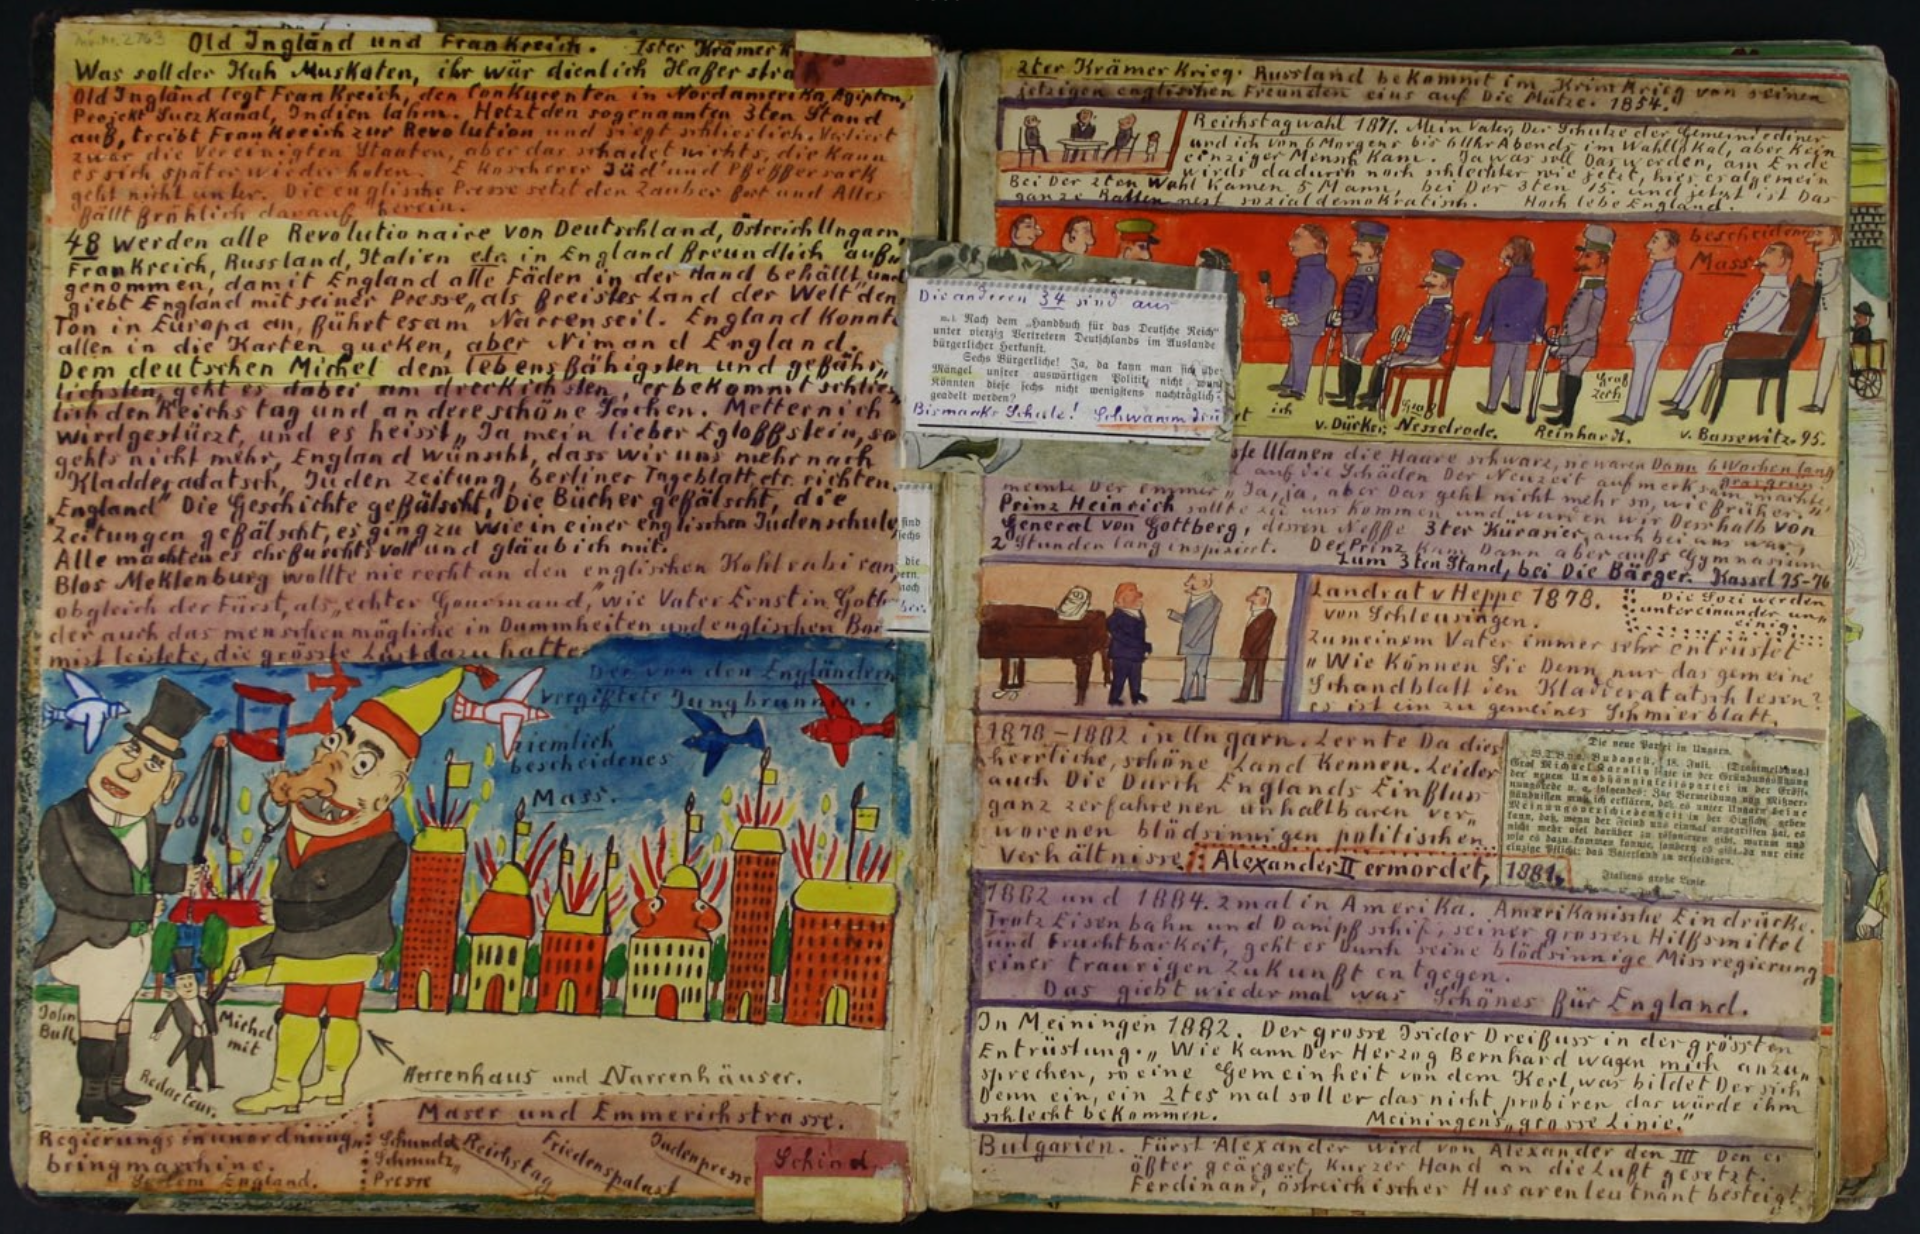 Inv. Nr. 2763
Old Ingländ und Frankreich. 1ster Krämerk
Was soll der Kuh Muskaten, ihr wär dienlich Hafer stra
Old Ingländ legt Frankreich, den Conkurenten in Nordamerika, Ägipten,
Projekt Suez Kanal, Indien lahm. Hetzt den sogenannten 3ten Stand
auf, treibt Frankreich zur Revolution und siegt schliesslich. Verliert
zwar die Vereinigten Staaten, aber das schadet nichts, die kann
es sich später wieder holen. E Koscherer Jüd und Pfeffersack
geht nicht unter. Die englische Presse setzt den Zauber fort und Alles
fällt fröhlich darauf herein.
48 werden alle Revolutionaire von Deutschland, Östreich Ungarn,
Frankreich, Russland, Italien etc. in England freundlich auf„
genommen, damit England alle Fäden in der Hand behällt, und
giebt England mit seiner Presse „als freistes Land der Welt" den
Ton in Europa an, führt es am Narrenseil. England konnte
allen in die Karten gucken, aber Nimand England.
Dem deutschen Michel dem lebensfähigsten und gefähr„
lichsten, geht es dabei am dreckichsten, er bekommt schlies„
lich den Reichstag und andere schöne Sachen. Metternich
wird gestürzt, und es heisst „Ja mein lieber Egloffstein, so
gehts nicht mehr, England wünscht, dass wir uns mehr nach
Kladderadatsch, Juden Zeitung, berliner Tageblatt etc. richten.
England" Die Geschichte gefälscht, Die Bücher gefälscht, die
Zeitungen gefälscht, es ging zu wie in einer englischen Judenschule,
Alle machten es ehrfurchts voll und gläubich mit.
Blos Meklenburg wollte nie recht an den englischen Kohlrabi ran,
obgleich der Fürst, als „echter Gourmand," wie Vater Ernst in Goth
der auch das menschenmögliche in Dummheiten und englischen Boc
mist leistete, die grösste Lust dazu hatte.
Der von den Engländern
vergiftete Jungbrunnen.
ziemlich
bescheidenes
Mass.
John
Bull
Michel
mit
Redacteur.
Herrenhaus und Narrenhäuser.
Maser und Emmerichstrasse.
Regierungsinunordnung„
bringmaschine.
System England.
Schund
Schmutz
Presse
Reichstag
Friedenspalast
Judenpresse
Schind
Die anderen 34 sind aus
m. Nach dem „Handbuch für das Deutsche Reich"
unter vierzig Vertretern Deutschlands im Auslande
bürgerlicher Herkunft.
Sechs Bürgerliche! Ja, da kann man sich über
Mängel unsrer auswärtigen Politik nicht wun
Könnten diese sechs nicht wenigstens nachträglich
geadelt werden?
Bismarks Schule! Schwamm drü
find
sechs
die
ern.
noch
2ter Krämer Krieg. Russland bekommt im Krimkrieg von seinen
jetzigen englischen Freunden eins auf Die Mütze. 1854.
Reichstagwahl 1871. Mein Vater, Der Schulze der Gemeindediner
und ich von 6 Morgens bis 6 Uhr Abends im Wahllokal, aber kein
einziger Mensch kam. Ja was soll Das werden, am Ende
wirds dadurch noch schlechter wie jetzt, hies es algemein
Bei Der 2ten Wahl kamen 5 Mann, bei Der 3ten 15. und jetzt ist Das
ganze Rattennest sozialdemokratisch. Hoch lebe England.
bescheidenes
Mass
ich
v. Dücker, Nesselrode. Reinhardt. v. Bassewitz. 95.
Graf
Graf
Zech
Ulanen die Haare schwarz, sie waren Dann 6 Wochen lang
auf die Schäden Der Neuzeit aufmerksam machte, grasgrün
meinte Der immer „Ja, ja, aber Das geht nicht mehr so, wie früher."
Prinz Heinrich sollte zu uns kommen und wurden wir Desshalb von
General von Gottberg, dessen Neffe 3ter Kürasier, auch bei uns war,
2 Stunden lang inspiziert. Der Prinz kam Dann aber aufs Gymnasium
Zum 3ten Stand, bei Die Bärger. Kassel 75-76
Landrat v Heppe 1878.
von Schleusingen.
Die Sozi werden
untereinander un„
einig.
zu meinem Vater immer sehr entrüstet
„Wie können Sie Denn nur das gemeine
Schandblatt den Kladderatatsch lesen?
es ist ein zu gemeines Schmierblatt.
1878-1882 in Ungarn. Lernte Da dies
herrliche, schöne Land kennen. Leider
auch Die Durch Englands Einfluss
ganz zerfahrenen unhaltbaren ver„
worenen blödsinnigen politischen
Verhältnisse. Alexander II ermordet, 1881.
Die neue Partei in Ungarn.
W.T.B. Budapest, 18. Juli. (Drahtmeldung)
Graf Michael Karolyi legte in der Gründungssitzung
der neuen Unabhängigkeitspartei in der Eröff-
nungsrede u. a. folgendes: Zur Vermeidung von Mißver-
ständnissen muß ich erklären, daß es unter Ungarn keine
Meinungsverschiedenheit in der Hinsicht geben
kann, daß, wenn der Feind uns einmal angegriffen hat, es
nicht mehr viel darüber zu räsonieren gibt, warum und
wie es dazu kommen konnte, sondern es gibt da nur eine
einzige Pflicht: das Vaterland zu verteidigen.
Italiens große Linie
1882 und 1884. 2mal in Amerika. Amerikanische Eindrücke.
Trotz Eisenbahn und Dampfschif, seiner grossen Hilfsmittel
und Fruchtbarkeit, geht es Durch seine blödsinnige Missregierung
einer traurigen Zukunft entgegen.
Das giebt wieder mal was Schönes für England.
In Meiningen 1882. Der grosse Isidor Dreifuss in der grössten
Entrüstung. „Wie kann Der Herzog Bernhard wagen mich anzu„
sprechen, so eine Gemeinheit von dem Kerl, was bildet Der sich
Denn ein, ein 2tes mal soll er das nicht probiren das würde ihm
schlecht bekommen. Meiningens „grosse Linie."
Bulgarien. Fürst Alexander wird von Alexander den III Den er
öfter geärgert, kurzer Hand an die Luft gesetzt.
Ferdinand, östreichischer Husarenleutnant besteigt